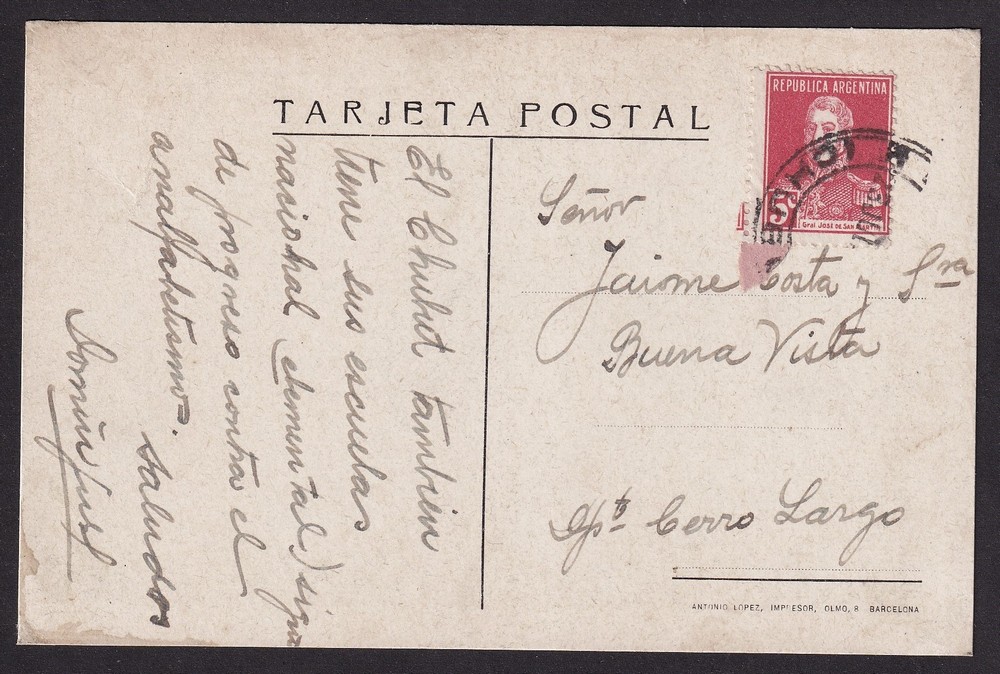 TARJETA POSTAL
El Chubut tambien
tiene sus escuelas
nacional elemental) signo
de progreso contra el
analfabetismo.
Saludos
REPUBLICA ARGENTINA
5c
Gral José de San Martín
Señor
Jaime Costa y Sra
Buena Vista
Dpto Cerro Largo
ANTONIO LOPEZ, IMPRESOR, OLMO, 8 BARCELONA